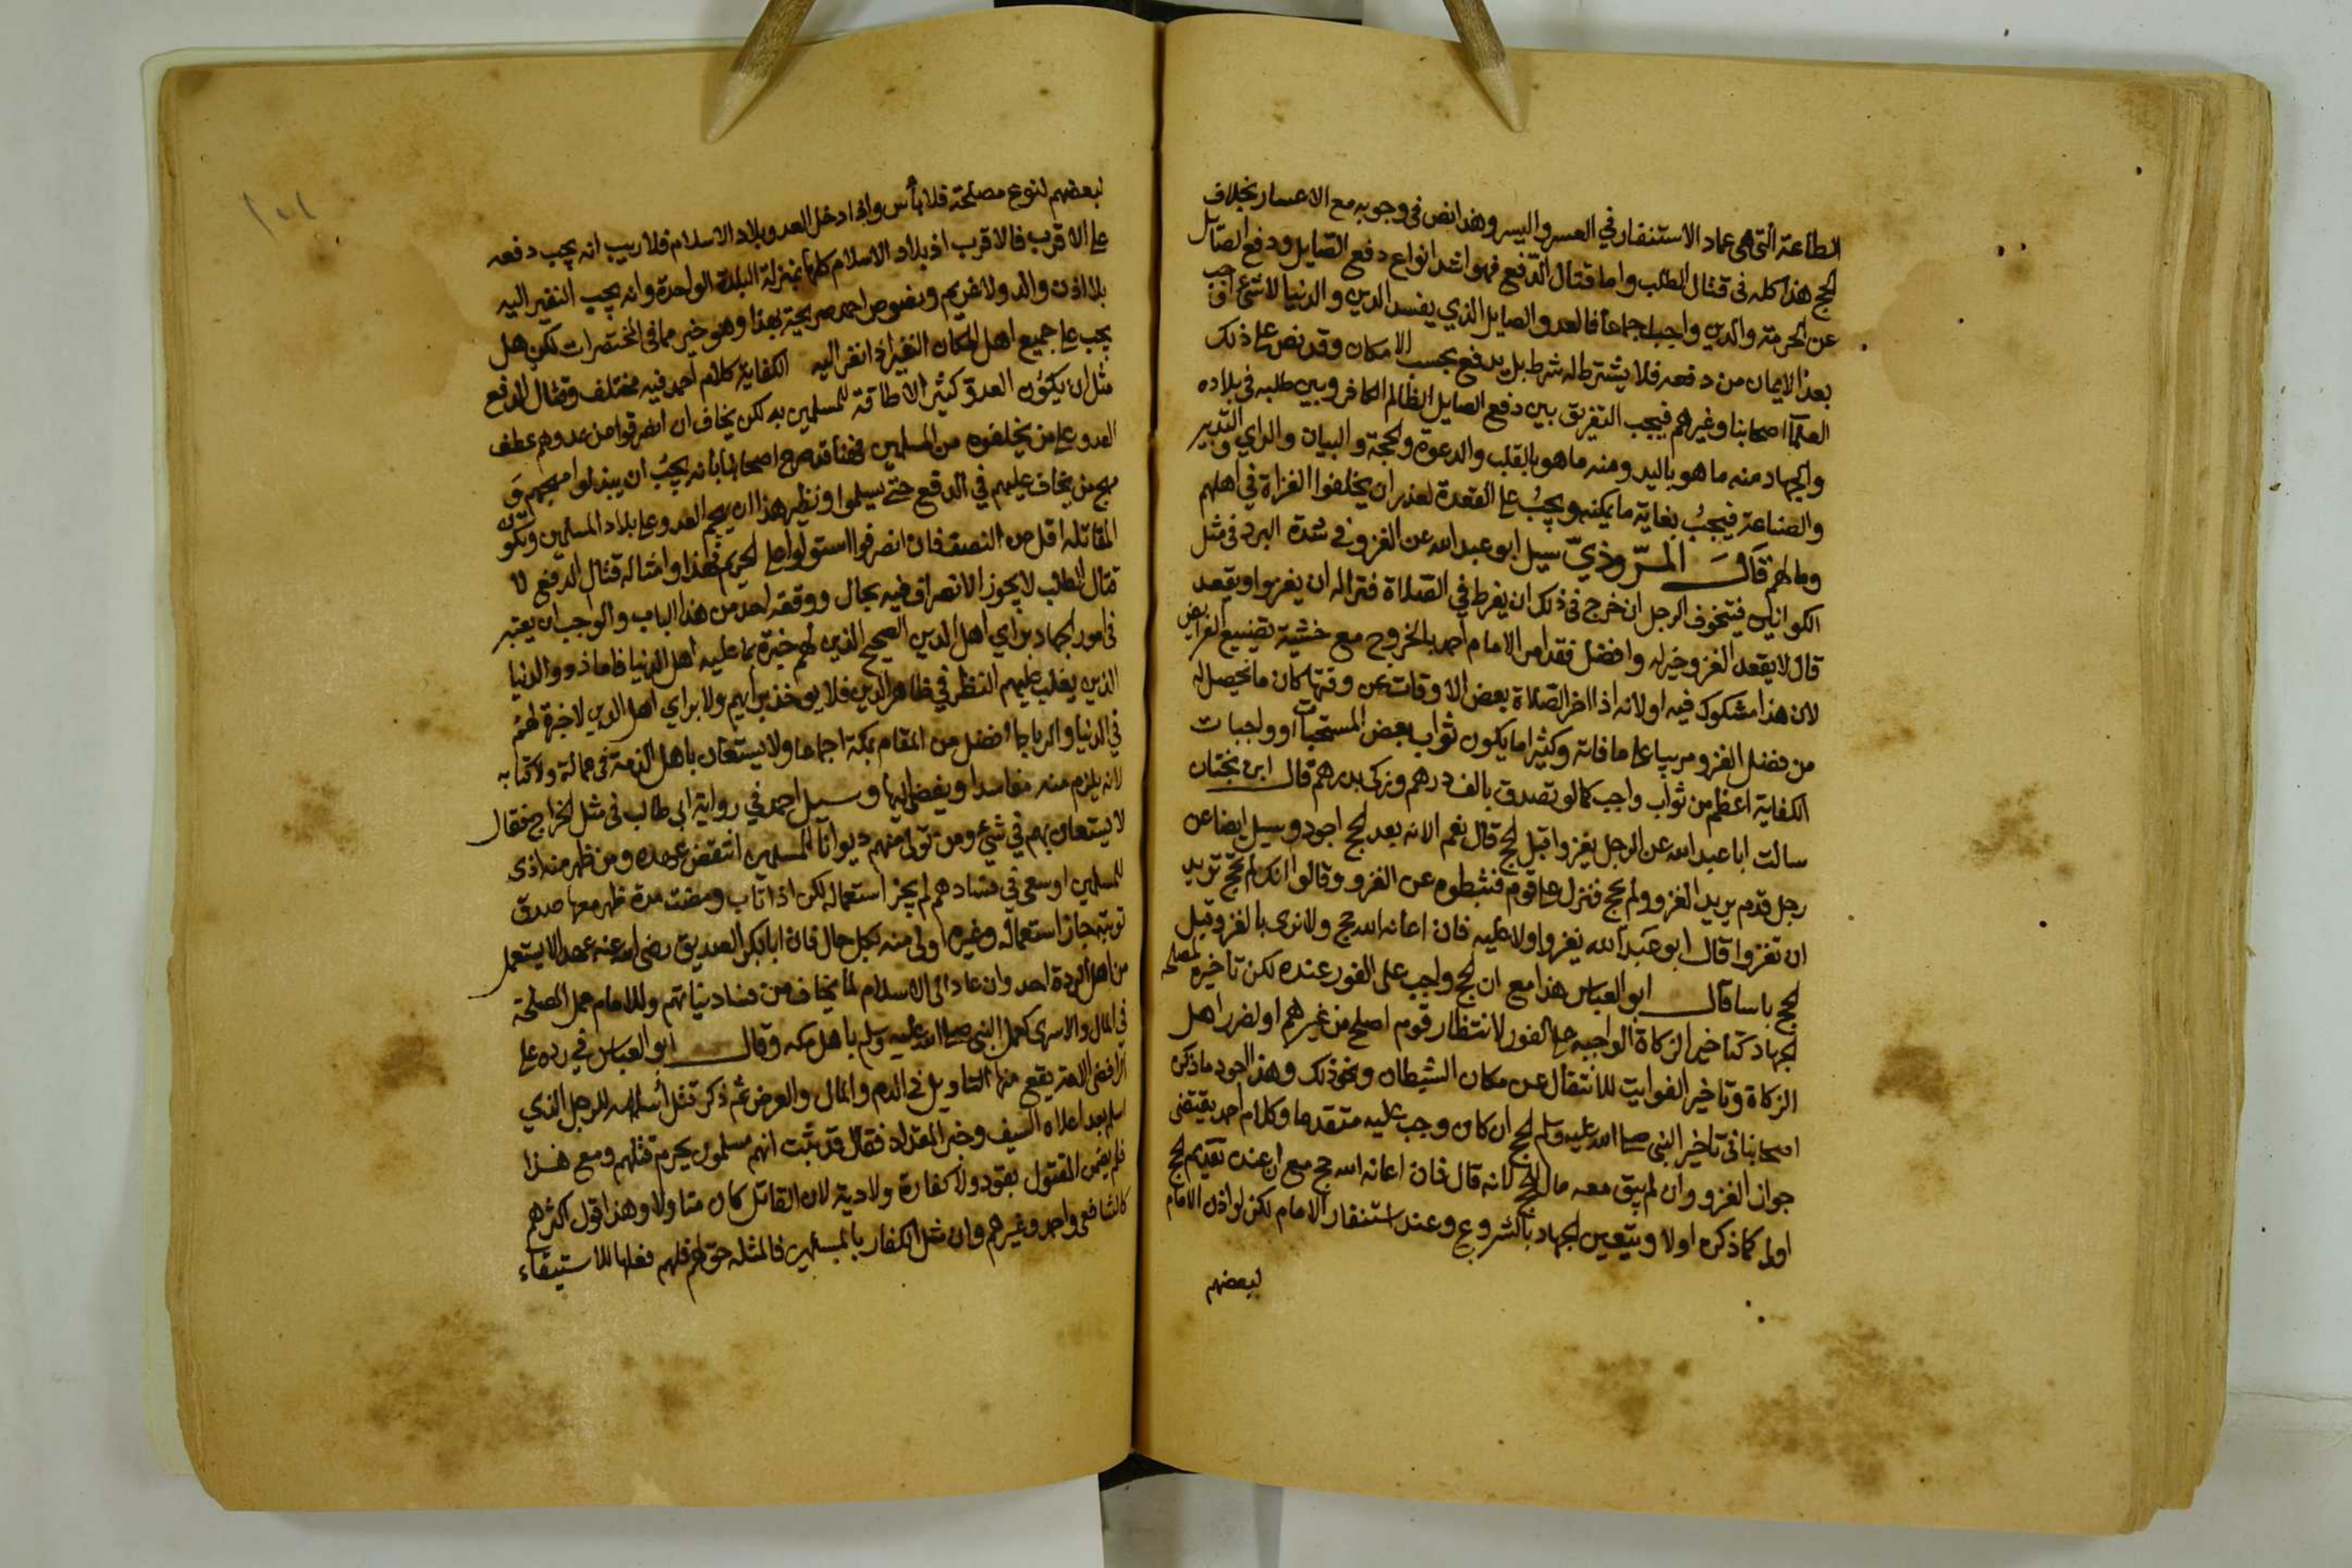 الطاعة التي هي عماد الاستنفار في العسر واليسر وهذا نص في وجوبه مع الاعسار بخلاف
الحج هذا كله في قتال الطلب واما قتال الدفع فهو اشد انواع دفع الصايل ودفع الصايل
عن الحرمة والدين واجب اجماعا فالعدو الصايل الذي يفسد الدين والدنيا لا شيء اوجب
بعد الايمان من دفعه فلا يشترط له شرط بل يدفع بحسب الامكان وقد نص على ذلك
العلماء اصحابنا وغيرهم فيجب التفريق بين دفع الصايل الظالم الكافر وبين طلبه في بلاده
والجهاد منه ما هو باليد ومنه ما هو بالقلب والدعوة والحجة والبيان والراي والتدبير
والصناعة فيجب بغاية ما يمكنه ويجب على القعدة لعذر ان يخلفوا الغزاة في اهلهم
ومالهم قال المروذي سيل ابو عبد الله عن الغزو في شدة البرد في مثل
الكوانين فيتخوف الرجل ان خرج في ذلك ان يفرط في الصلاة فترى له ان يغزوا او يقعد
قال لا يقعد الغزو خير له وافضل فقد امر الامام احمد بالخروج مع خشية تضييع الفرايض
لان هذا مشكوك فيه او لانه اذا اخر الصلاة بعض الاوقات عن وقتها كان ما يحصل له
من فضل الغزو مربيا على ما فاته وكثيرا ما يكون ثواب بعض المستحبات او واجبات
الكفاية اعظم من ثواب واجب كما لو تصدق بالف درهم وزكى بدرهم قال ابن بختان
سالت ابا عبد الله عن الرجل يغزوا قبل الحج قال نعم الا انه بعد الحج اجود وسيل ايضا عن
رجل قدم يريد الغزو ولم يحج فنزل على قوم فثبطوه عن الغزو وقالوا انك لم تحج تريد
ان تغزوا قال ابو عبد الله يغزوا ولا عليه فان اعانه الله حج ولا نرى بالغزو قبل
الحج باسا قال ابو العباس هذا مع ان الحج واجب على الفور عنده لكن تاخيره لمصلحة
الجهاد كتاخير الزكاة الواجبة على الفور لانتظار قوم اصلح من غيرهم او لضرر اهل
الزكاة وتاخير الفوايت للانتقال عن مكان الشيطان ونحو ذلك وهذا اجود ما ذكره
اصحابنا في تاخير النبي صلى الله عليه وسلم الحج ان كان وجب عليه متقدما وكلام احمد يقتضي
جواز الغزو وان لم يبق معه مال للحج لانه قال فان اعانه الله حج مع ان عنده تقديم الحج
اولى كما ذكره اولا ويتعين الجهاد بالشروع وعند استنفار الامام لكن لو اذن الامام
لبعضهم
١٠١
لبعضهم لنوع مصلحة فلا بأس واذا دخل العدو بلاد الاسلام فلا ريب انه يجب دفعه
على الاقرب فالاقرب اذ بلاد الاسلام كلها بمنزلة البلدة الواحدة وانه يجب النفير اليه
بلا اذن والد ولا غريم ونصوص احمد صريحة بهذا وهو خير مما في المختصرات لكن هل
يجب على جميع اهل المكان النفير اذا نفر اليه الكفاية كلام احمد فيه مختلف وقتال الدفع
مثل ان يكون العدو كثيرا لا طاقة للمسلمين به لكن يخاف ان انصرفوا عن عدوهم عطف
العدو على من يخلفون من المسلمين فهنا قد صرح اصحابنا بانه يجب ان يبذلوا مهجهم و
مهج من يخاف عليهم في الدفع حتى يسلموا ونظير هذا ان يهجم العدو على بلاد المسلمين وتكون
المقاتلة اقل من النصف فان انصرفوا استولوا على الحريم فهذا وامثاله قتال الدفع لا
قتال الطلب لا يجوز الانصراف فيه بحال ووقعة احد من هذا الباب والواجب ان يعتبر
في امور الجهاد براي اهل الدين الصحيح الذين لهم خبرة بما عليه اهل الدنيا فاما ذووا الدنيا
الذين يغلب عليهم النظر في ظاهر الدين فلا يوخذ برايهم ولا براي اهل الدين لا خبرة لهم
في الدنيا والرباط افضل من المقام بمكة اجماعا ولا يستعان باهل الذمة في عمالة ولا كتابة
لانه يلزم منه مفاسد او يفضي اليها وسيل احمد في رواية ابي طالب في مثل الخراج فقال
لا يستعان بهم في شيء ومن تولى منهم ديوانا للمسلمين انتقض عهده ومن ظهر منه اذى
للمسلمين او سعى في فسادهم لم يجز استعماله لكن اذا تاب ومضت مدة ظهر معها صدق
توبته جاز استعماله وغيره اولى منه بكل حال فان ابا بكر الصديق رضي الله عنه عهد الا يستعمل
من اهل الردة احد وان عاد الى الاسلام لما يخاف من فساد نياتهم وللامام عمل المصلحة
في المال والاسرى كعمل النبي صلى الله عليه وسلم باهل مكة وقال ابو العباس في رده على
الرافضي اللعين يقع منها التاويل في الدم والمال والعرض ثم ذكر قتل أسامة للرجل الذي
اسلم بعد ان علاه السيف وخبر المقداد فقال قد ثبت انهم مسلمون يحرم قتلهم ومع هذا
فلم يضمن المقتول بقود ولا كفارة ولا دية لان القاتل كان متاولا وهذا قول اكثرهم
كالشافعي واحمد وغيرهم وان مثل الكفار بالمسلمين فالمثلة حق لهم فلهم فعلها للاستيفاء